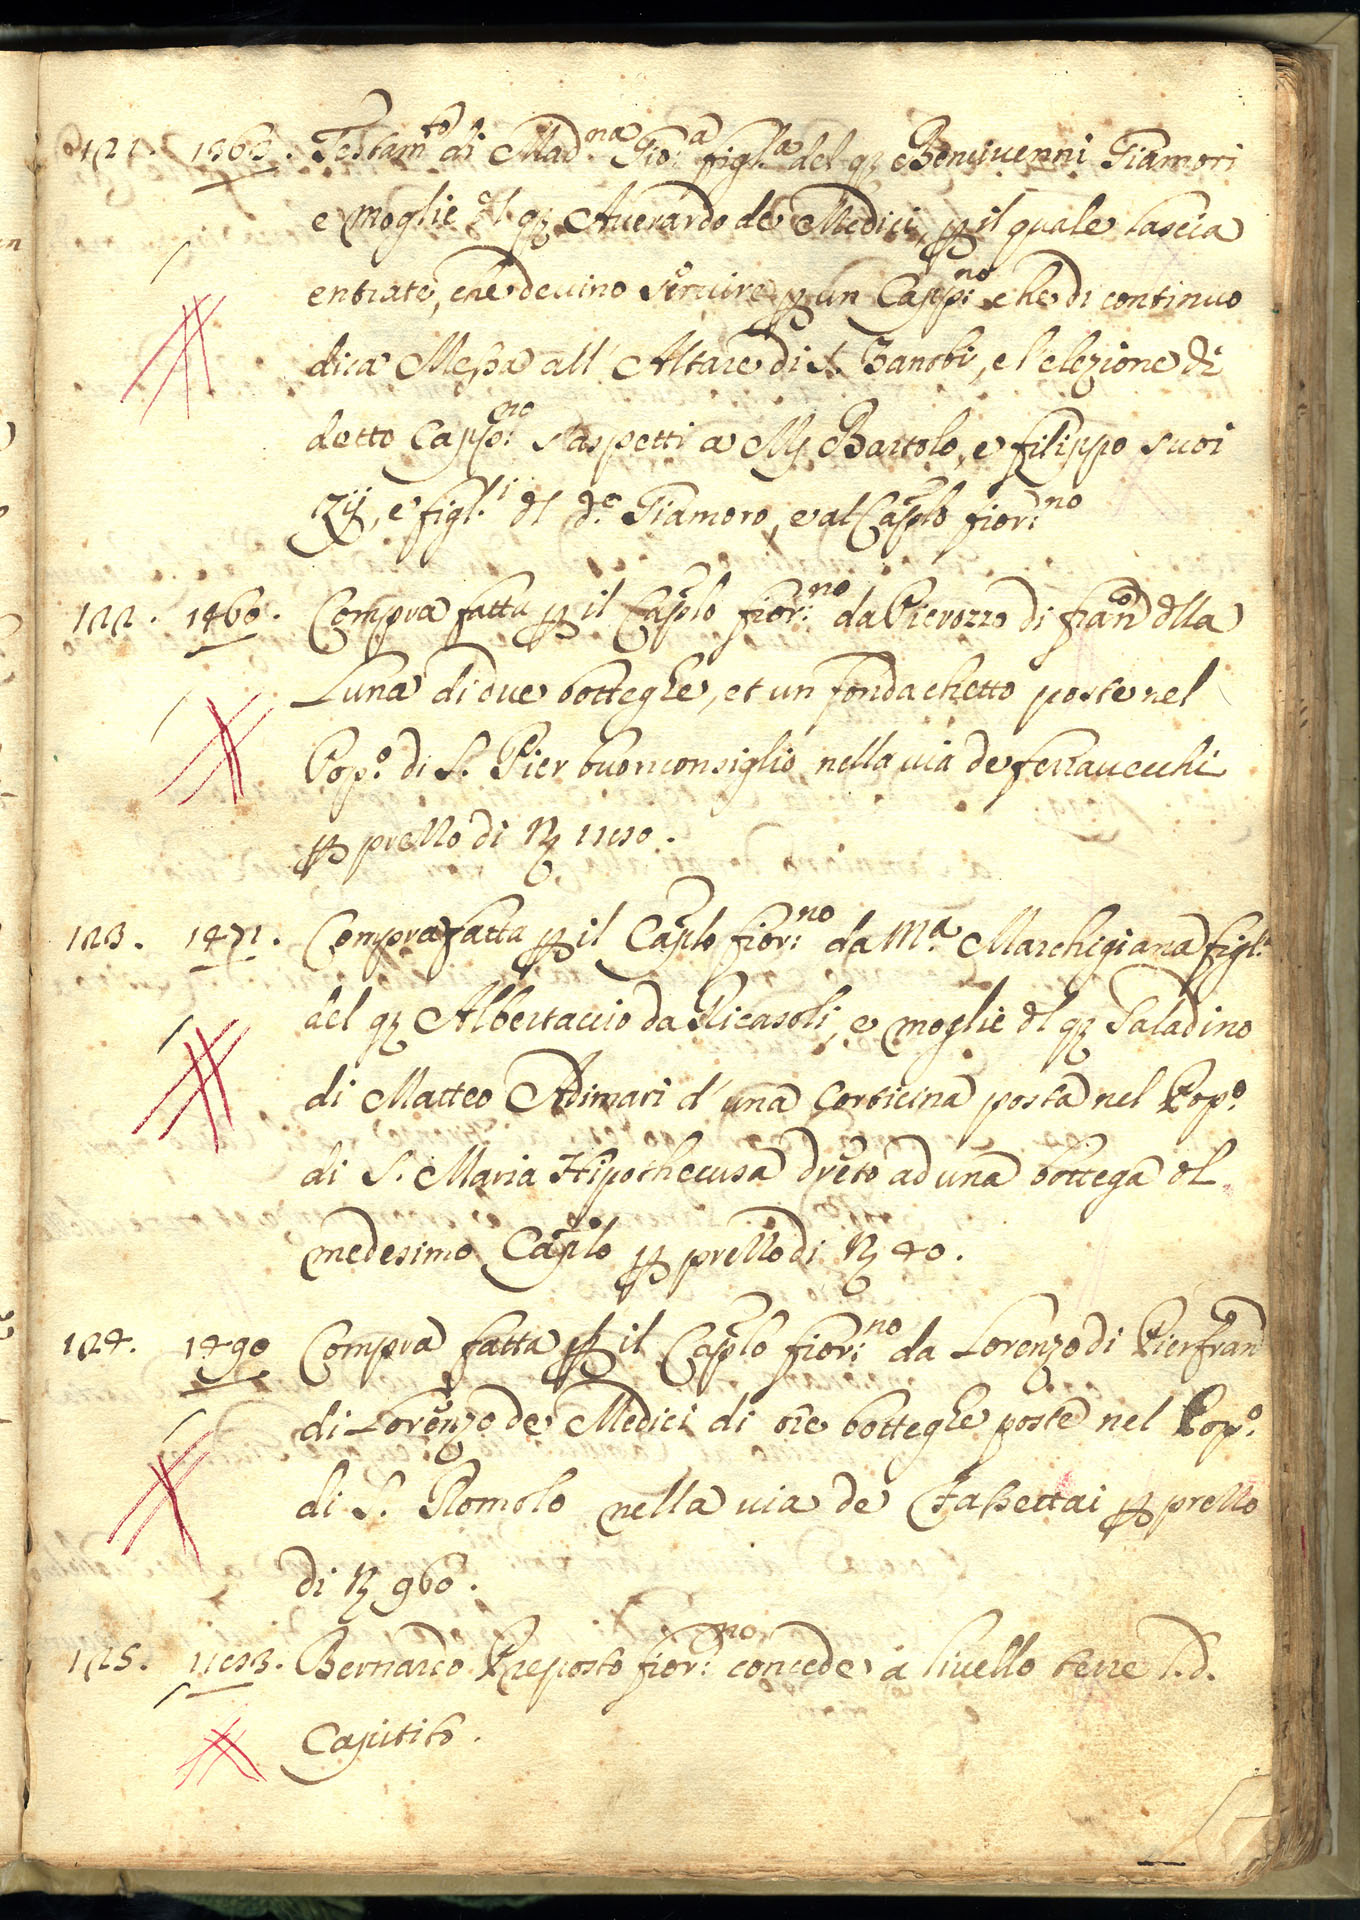 121. 1363. Testam.to di Mad.na Gio.a figl.a del q. Bencivenni Giamori
e moglie dl q. Averardo de Medici, p il quale lascia
entrate, che devino servire p un Capp.no che di continuo
dica Messa all' Altare di S. Zanobi, e l'elezione di
detto Capp.no s'aspetti a Mʃ Bartolo, e filippo suoi
Zij, e figl.i dl d.o Giamoro, e al Caplo fior.no
122. 1460. Compra fatta p il Caplo fior.no da Pierozzo di fran.o dlla
Luna di due botteghe, et un fondachetto poste nel
Pop.o di S. Pier buonconsiglio nella via de ferravecchi
p prezzo di
123. 1471. Compra fatta p il Caplo fior.no da M.a Marchigiana figl.a
del q. Albertaccio da Ricasoli, e moglie dl q. Saladino
di Matteo Adimari d'una Corticina posta nel Pop.o
di S. Maria Hipothecusa dreto ad una bottega dl
medesimo Caplo p prezzo di 40.
124. 1490 Compra fatta p il Caplo fior.no da Lorenzo di Pierfran.o
di Lorenzo de Medici di tre botteghe poste nel Pop.o
di S. Romolo nella via de Cassettai p prezzo
di 960.
125. Bernardo Preposto fior.no concede a livello terre s.d.
Capitito.